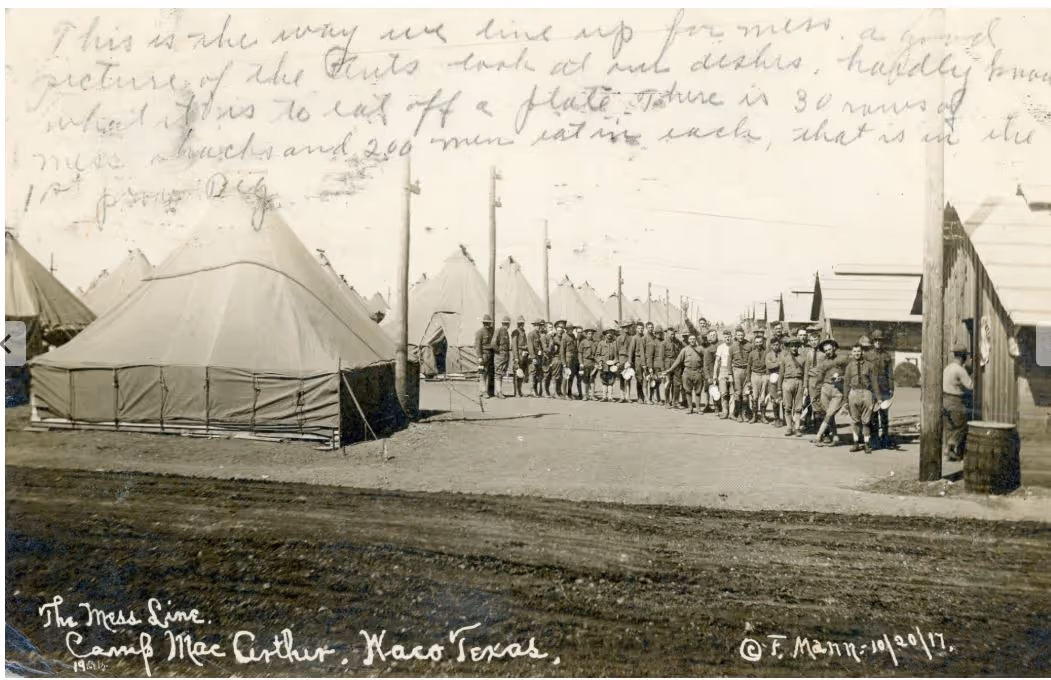 This is the way we line up for mess. a good
picture of the tents look at our dishes, hardly know
what it is to eat off a plate. There is 30 rows of
mess shacks and 200 men eat in each, that is in the
1st
The Mess Line.
Camp Mac Arthur, Waco Texas,
© F. Mann - 10/20/17.